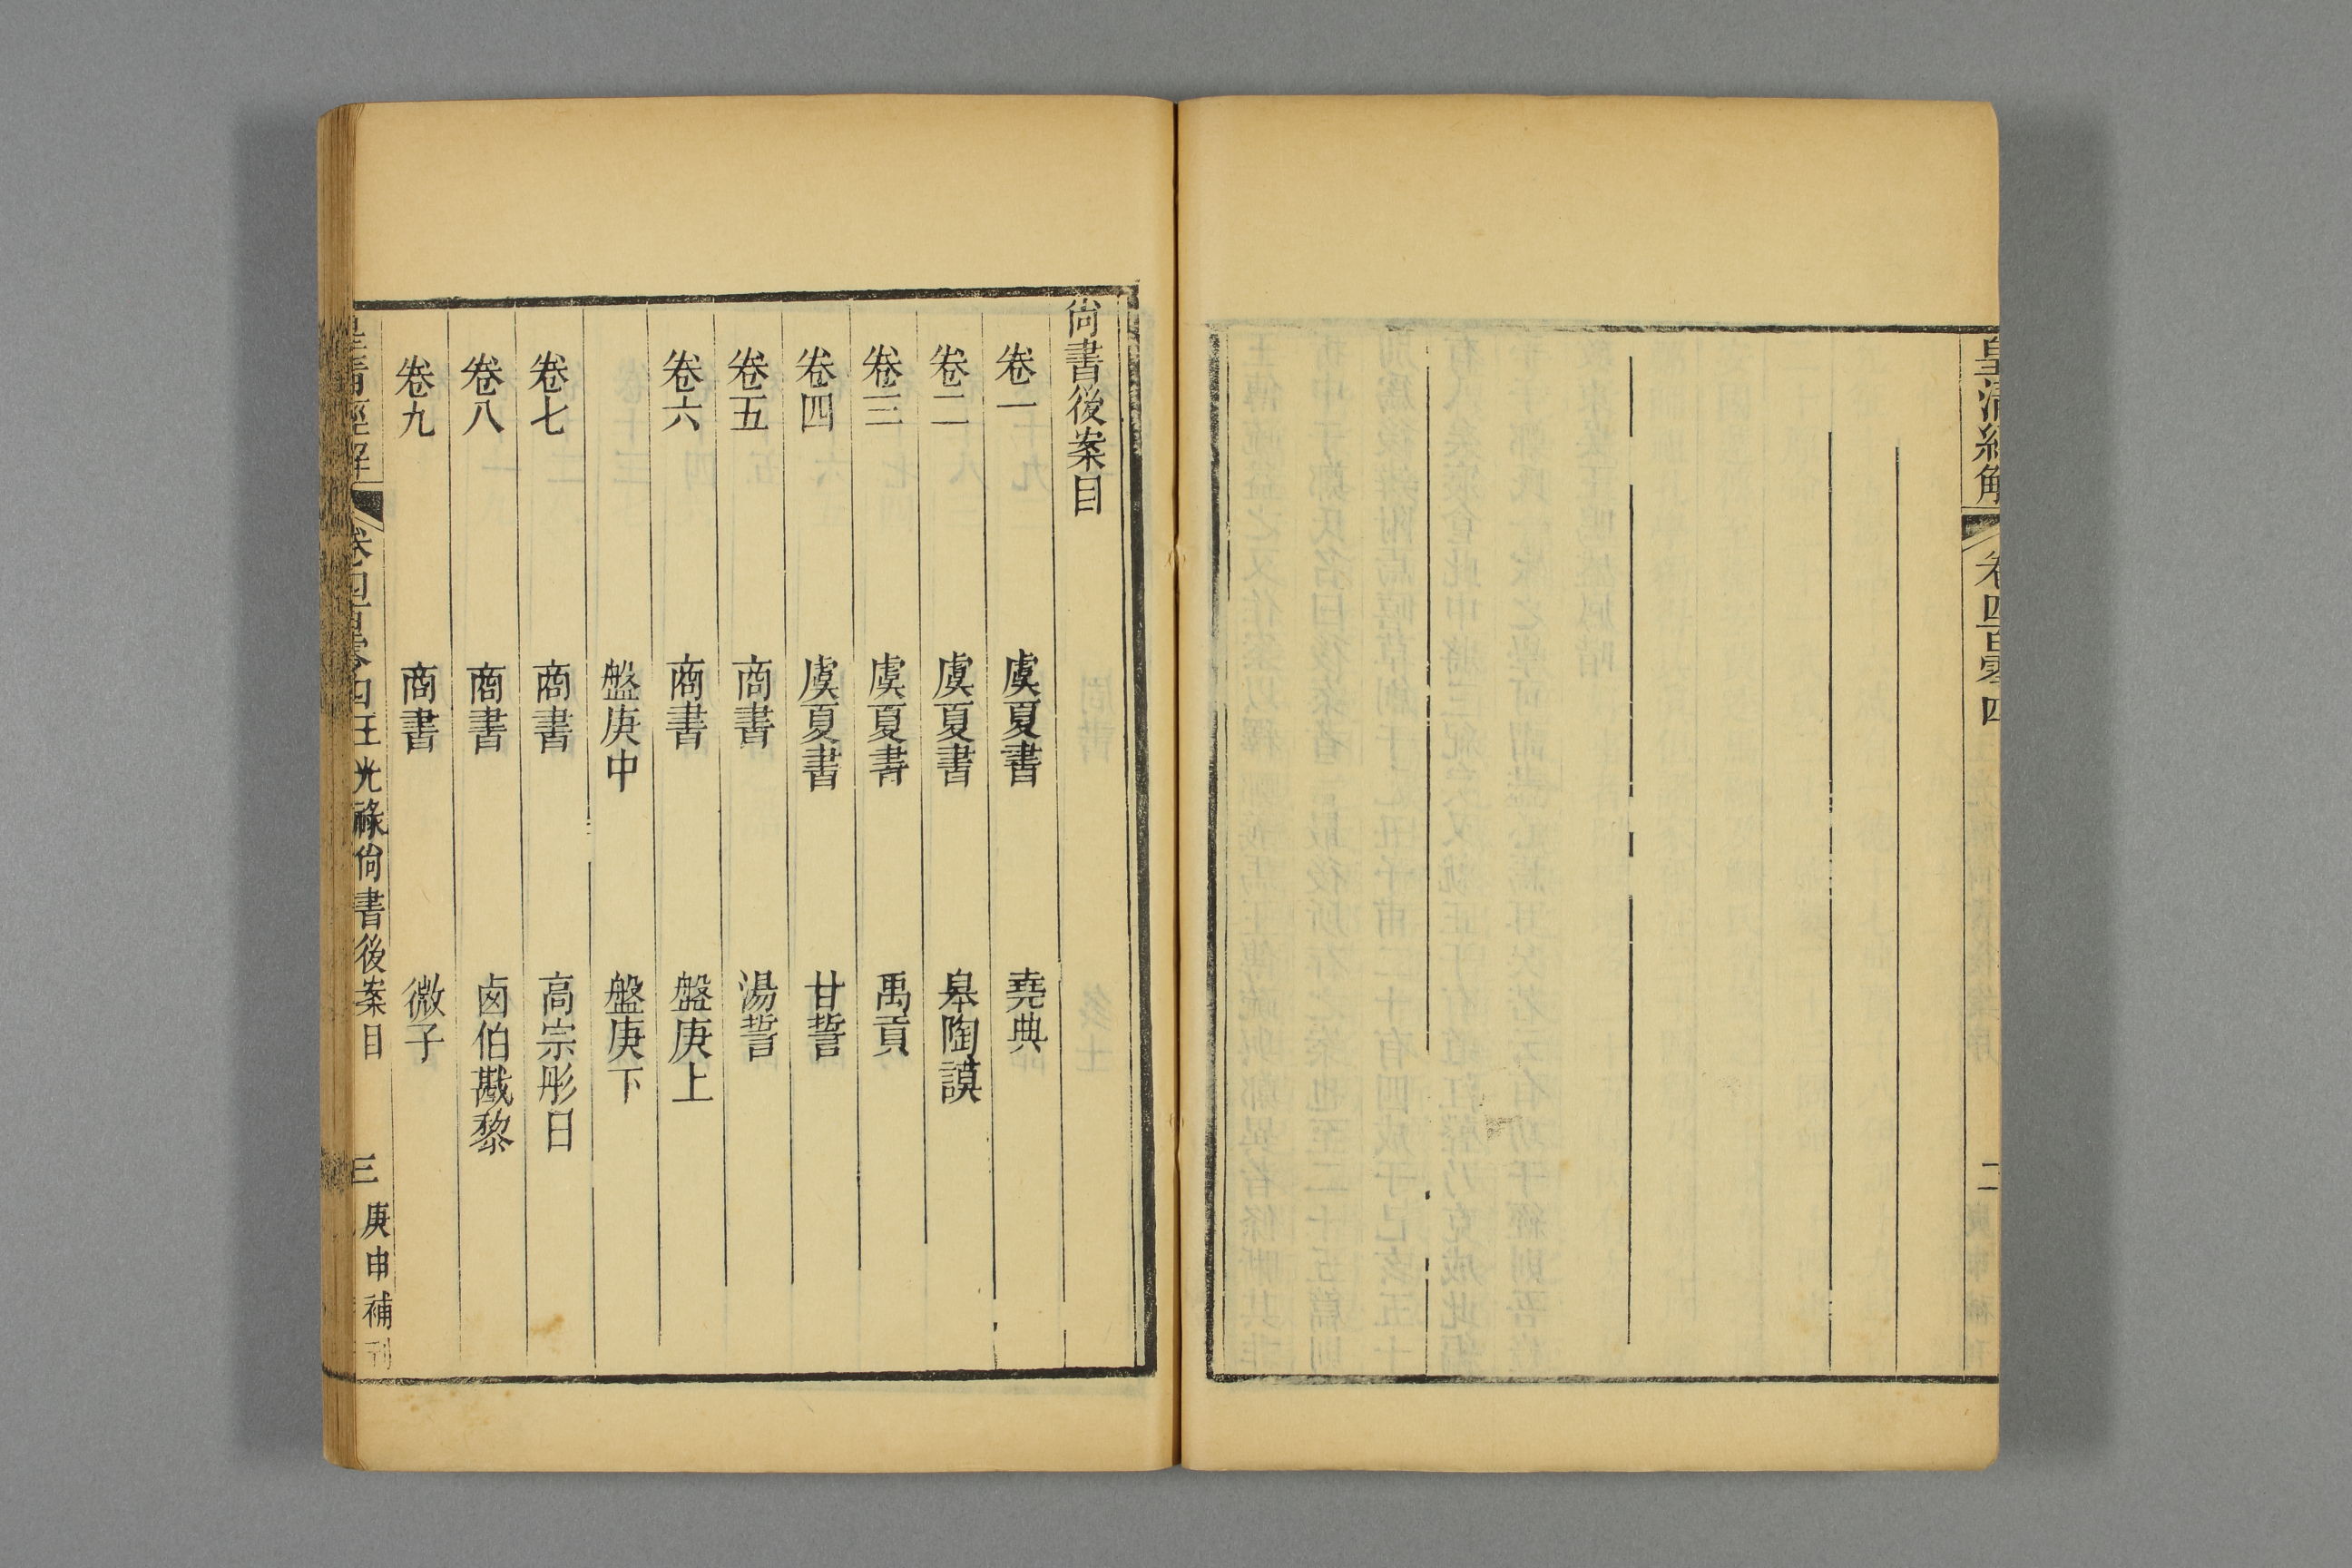 皇清經解
卷四百零四
二
尙書後案目
卷一 虞夏書 堯典
卷二 虞夏書 皋陶謨
卷三 虞夏書 禹貢
卷四 虞夏書 甘誓
卷五 商書 湯誓
卷六 商書 盤庚上
盤庚中 盤庚下
卷七 商書 高宗肜日
卷八 商書 㢴伯戡黎
卷九 商書 微子
皇清經解 卷四百零四 王光祿尙書後案目 三 庚申補刊